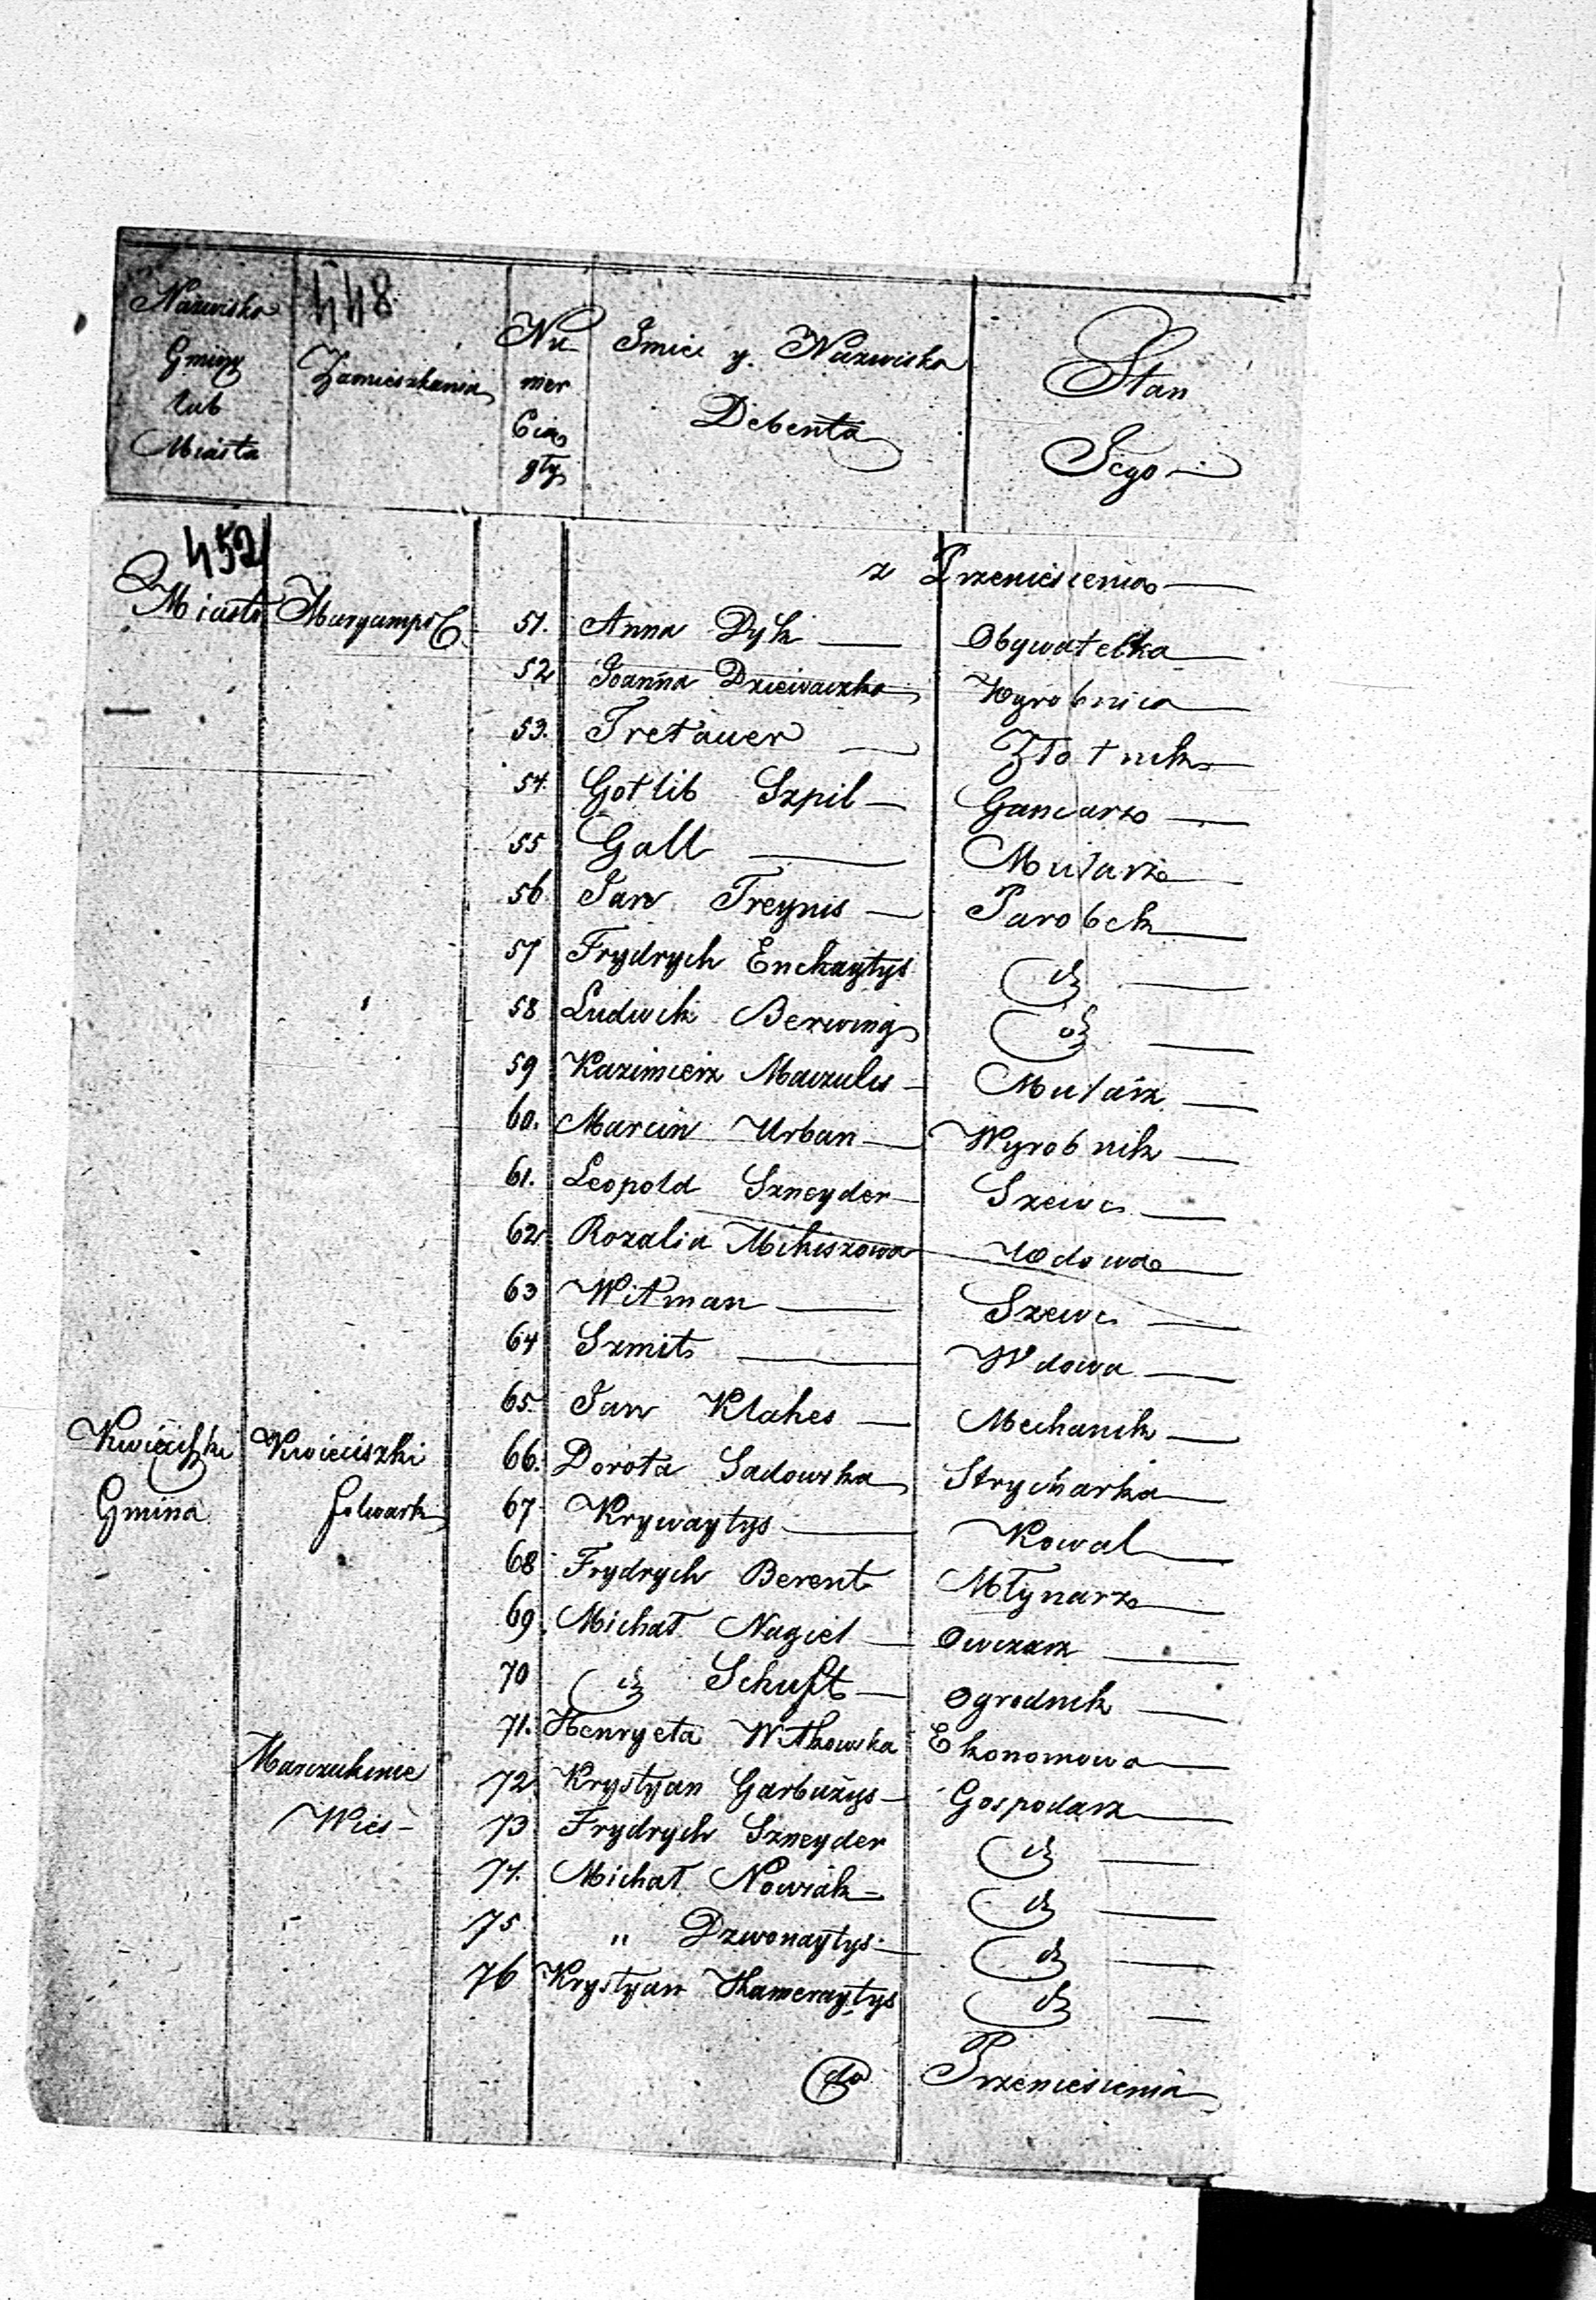 Nazwisko Gminy lub Miasta
448
Zamieszkania
Nu mer Cią gły
Imie y. Nazwisko Debenta
Stan Jego
452
z Przeniesienia
Miasto Maryampol 51. Anna Dyk Obywatelka
52 Joanna Dziewaczka Wyrobnica
53. Tretauer Złotnik
54. Gotlib Szpil Gancarz
55 Gall Mularz
56 Jan Treynis Parobek
57 Frydrych Enckaytys d
58 Ludwik Berwing d
59 Kazimierz Maczulis Mularz
60. Marcin Urban Wyrobnik
61. Leopold Szneyder Szewc
62 Rozalia Mikiszowa Wdowa
63 Witman Szewc
64 Szmit Wdowa
65. Jan Klahes Mechanik
Kwieciszki Kwieciszki 66. Dorota Sadowska Strycharka
Gmina folwark 67 Krywaytys Kowal
68 Frydrych Berent Młynarz
69. Michał Nagiel Owczarz
70 d Schuft Ogrodnik
71. Henryeta Witkowska Ekonomowa
Marczukinie 72 Krystyan Garbużys Gospodarz
Wieś 73 Frydrych Szneyder d
74. Michał Nowiak d
75 " Dzwonaytys d
76 Krystyan Kameraytys d
do Przeniesienia